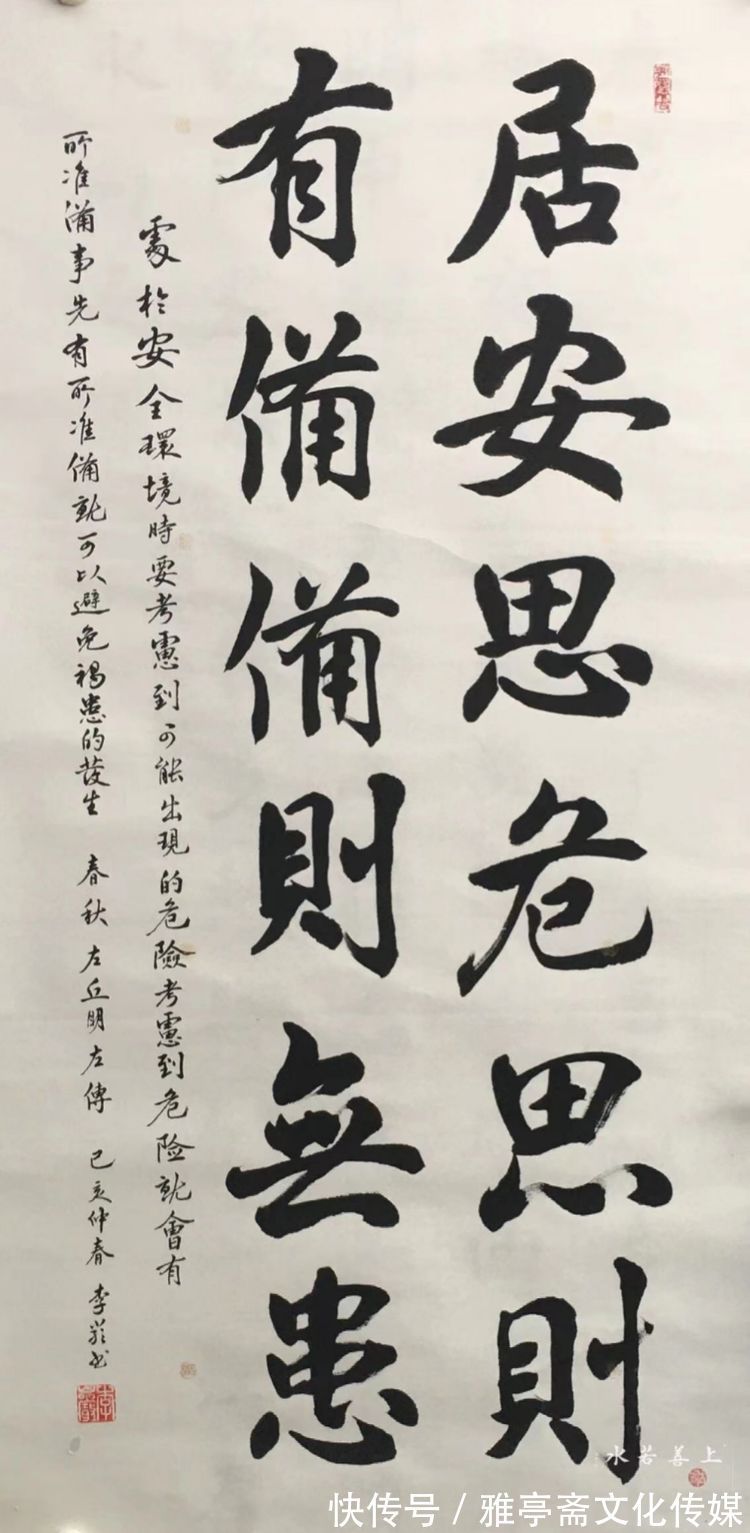 居安思危思則
有備備則無患
處於安全環境時要考慮到可能出現的危險考慮到危险就會有
所准備事先有所准備就可以避免禍患的發生 春秋 左丘明左傳 己亥仲春 李
上善若水
快传号 / 雅亭斋文化传媒